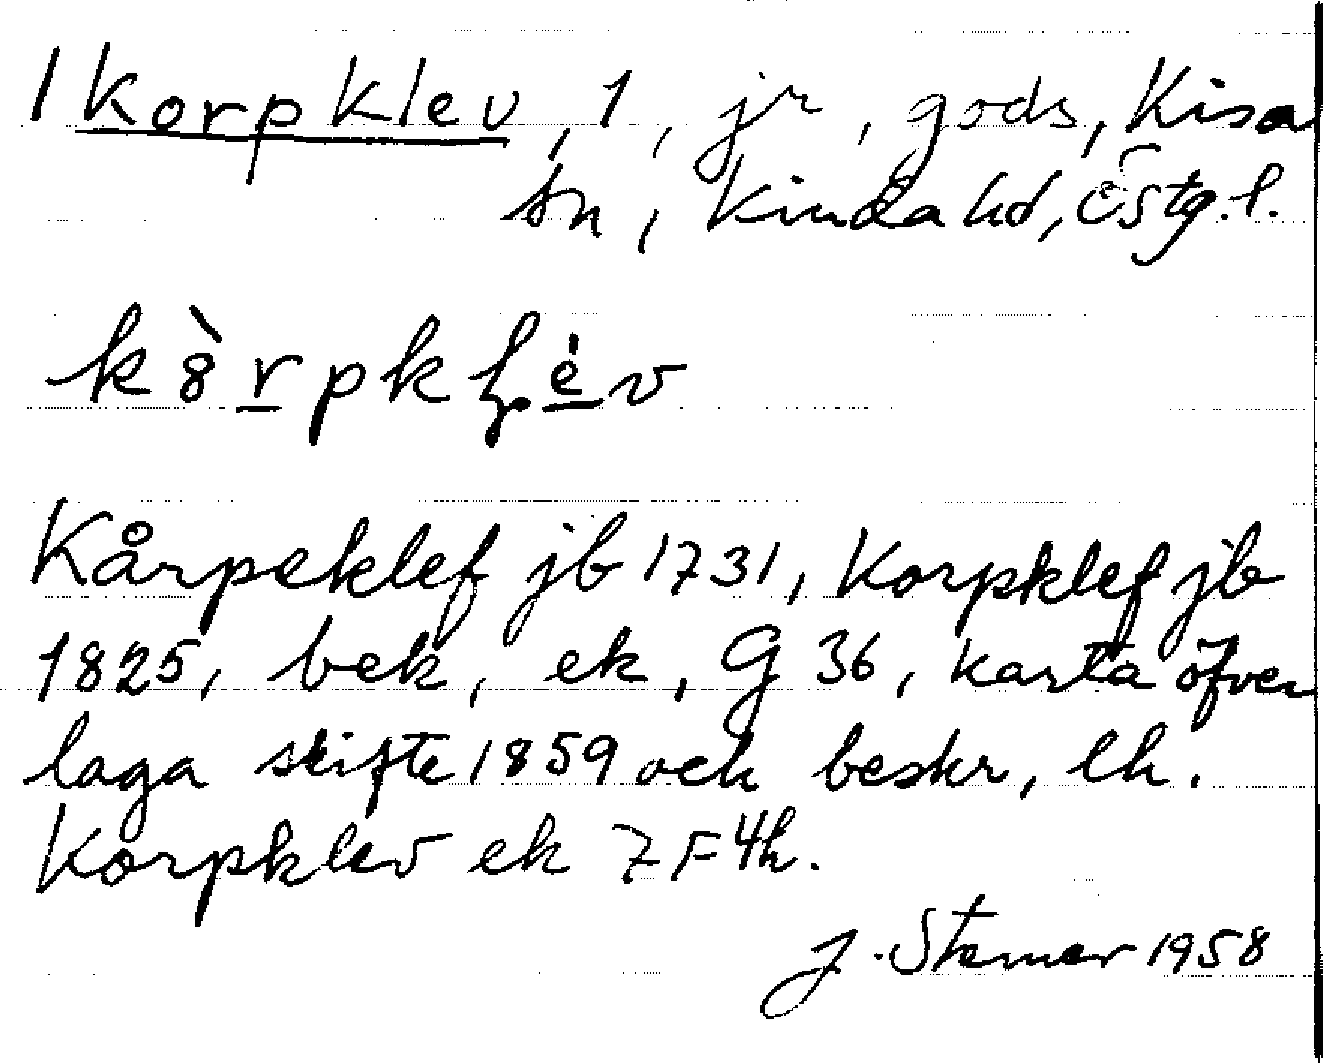 1 Korpklev, 1, jr, gods, Kisa
sn, Kinda hd, Östg. l.
Kårpeklef jb 1731, Korpklef jb
1825, bek, ek, G 36, karta öfver
laga skifte 1859 och beskr, lh.
Korpklev ek 7 F 4h.
J. Stemer 1958